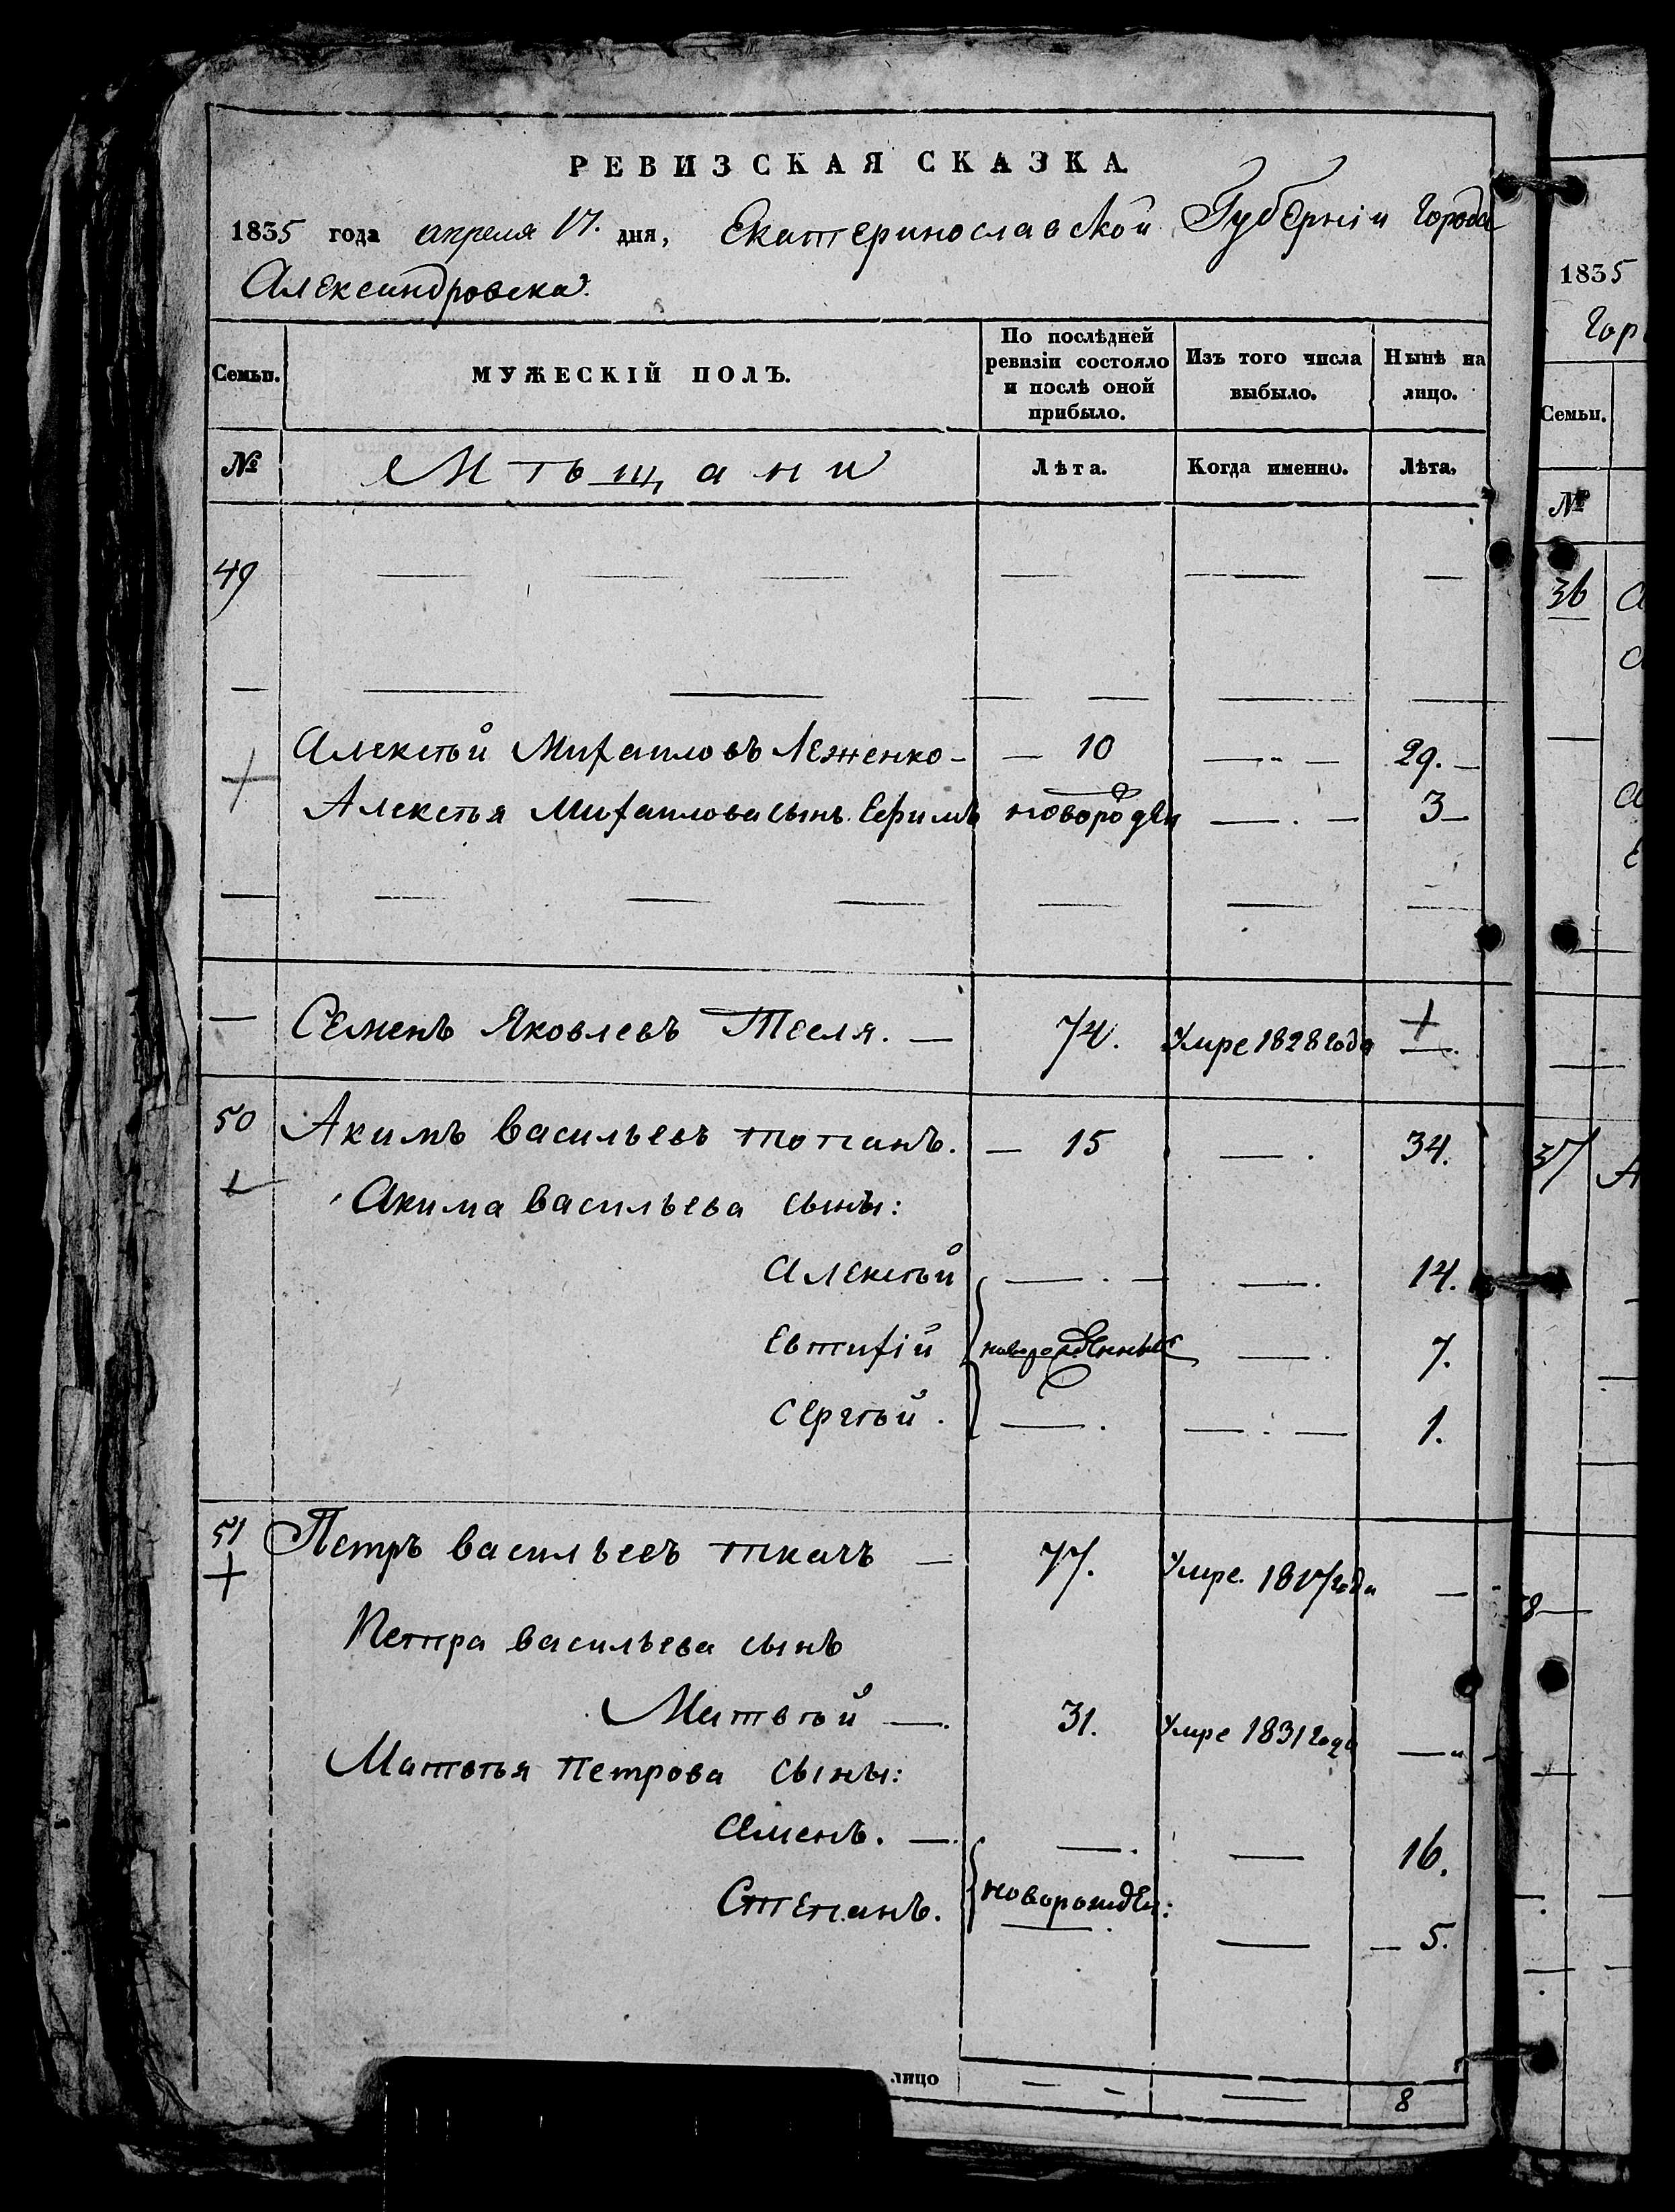 РЕВИЗСКАЯ СКАЗКА
1835 года апреля 17. дня, Екатеринославской Губерніи Города
Александровска.
Семьи.
МУЖЕСКІЙ ПОЛЪ.
По послѣдней ревизіи состояло и послѣ оной прибыло.
Изъ того числа выбыло.
Нынѣ на лицо.
№
Мѣщани
Лѣта.
Когда именно.
Лѣта.
49
Алексѣй Михаиловъ Леженко — 10 29.
Алексѣя Михаилова сынъ Ефимъ новорожден 3
Семенъ Яковлевъ Тесля. — 74. Умре 1828 года
50 Акимъ Васильевъ Топанъ. — 15 34.
Акима Васильева сыны:
Алексѣй 14.
Евтихій новорожденные 7.
Сергѣй. 1.
51 Петръ Васильевъ Ткачъ — 77. Умре 1817 года —
Петра Васильева сынъ
Матвѣй —. 31. Умре 1831 года
Матвѣя Петрова сыны:
Семенъ. — 16.
Степанъ. новорожден: 5.
лицо 8
1835
Гор
Семьи.
№
36
37